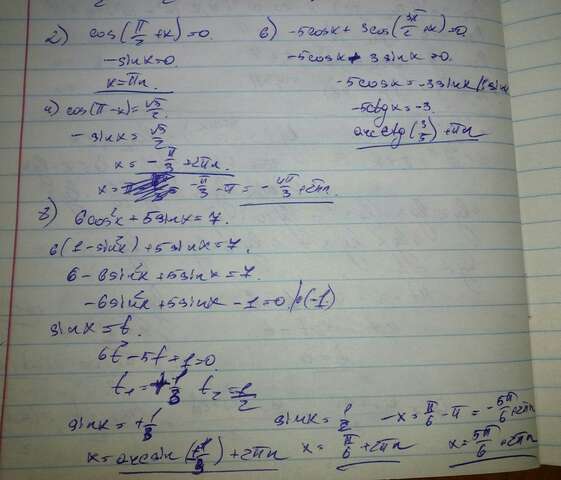 2) cos(π/2 + x) = 0.
-sinx = 0.
x = πn.
a) cos(π - x) = √3/2.
-sinx = √3/2
x = -π/3 + 2πn.
x = -π/3 - π = -4π/3 + 2πn.
в) -5cosx + 3cos(3π/2 + x) = 0.
-5cosx + 3sinx = 0.
-5cosx = -3sinx
-5ctgx = -3.
arcctg(3/5) + πn
3) 6cos²x + 5sinx = 7.
6(1 - sin²x) + 5sinx = 7.
6 - 6sin²x + 5sinx = 7.
-6sin²x + 5sinx - 1 = 0 /•(-1)
sinx = t.
6t² - 5t + 1 = 0.
t₁ = 1/3 t₂ = 1/2
sinx = +1/3
x = arcsin(+1/3) + 2πn
sinx = 1/2 -x = π/6 - π = -5π/6 + 2πn
x = π/6 + 2πn x = 5π/6 + 2πn